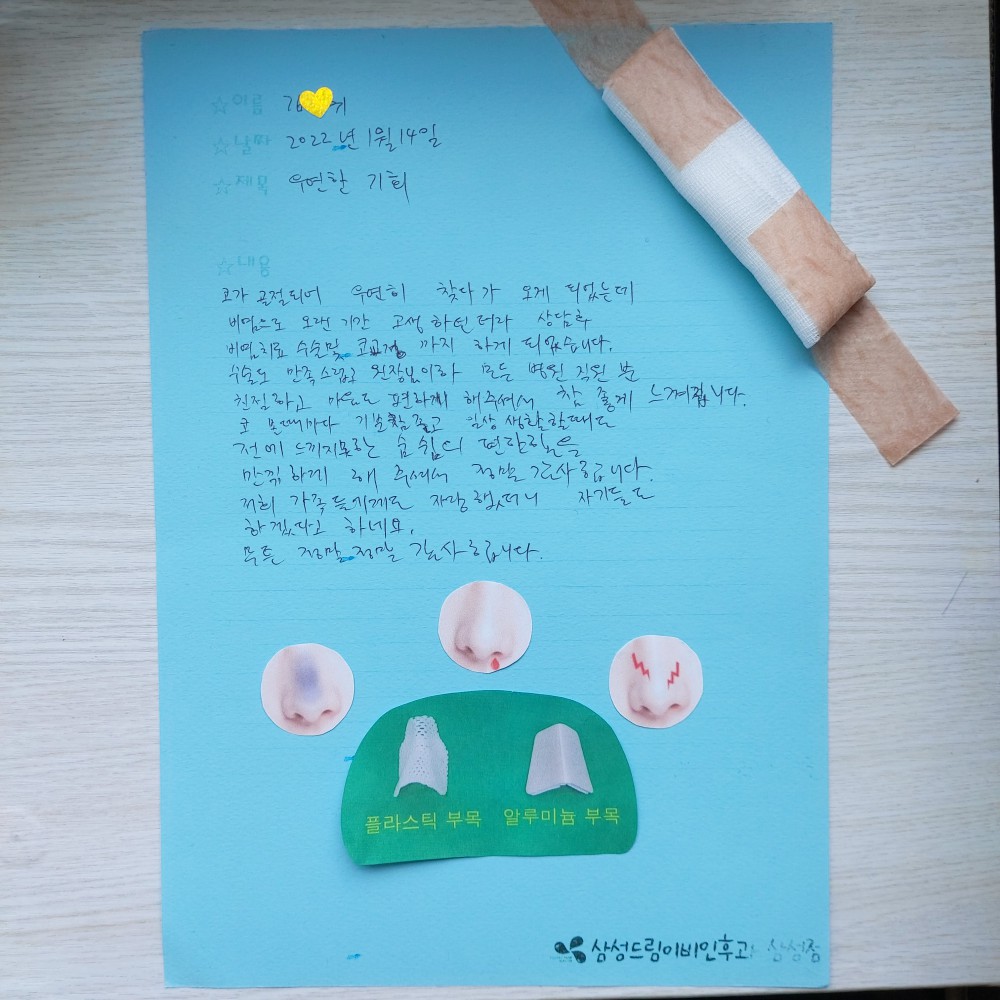 ☆이름
☆날짜 2022년 1월 14일
☆제목 우연한 기회
☆내용
코가 골절되어 우연히 찾다가 오게 되었는데
비염으로 오랜 기간 고생하던터라 상담후
비염치료 수술및 코교정 까지 하게 되었습니다.
수술도 만족스럽고 원장님이하 모든 병원 직원 분
친절하고 마음도 편하게 해주셔서 참 좋게 느껴집니다.
코 볼때마다 기분참좋고 일상생활할때도
전에 느끼지못한 숨쉼의 편안함을
만끽하게 해 주셔서 정말 감사합니다.
저희 가족들에게도 자랑했더니 자기들도
하겠다고 하네요.
무튼 정말 정말 감사합니다.
플라스틱 부목 알루미늄 부목
삼성드림이비인후과 삼성점